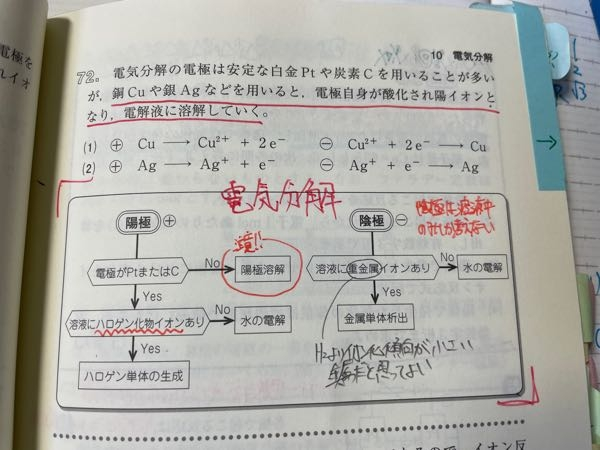 10 電気分解
電極を
72. 電気分解の電極は安定な白金Ptや炭素Cを用いることが多い
が，銅Cuや銀Agなどを用いると，電極自身が酸化され陽イオンと
なり，電解液に溶解していく。
(1) ⊕ Cu ⟶ Cu²⁺ + 2e⁻ ⊖ Cu²⁺ + 2e⁻ ⟶ Cu
(2) ⊕ Ag ⟶ Ag⁺ + e⁻ ⊖ Ag⁺ + e⁻ ⟶ Ag
電気分解
陽極 ⊕
電極がPtまたはC
No
陽極溶解
Yes
溶液にハロゲン化物イオンあり
No
水の電解
Yes
ハロゲン単体の生成
陰極 ⊖
陰極は
溶液に重金属イオンあり
No
水の電解
Yes
金属単体析出
H₂よりイオン化傾向が小さい
と思ってよい